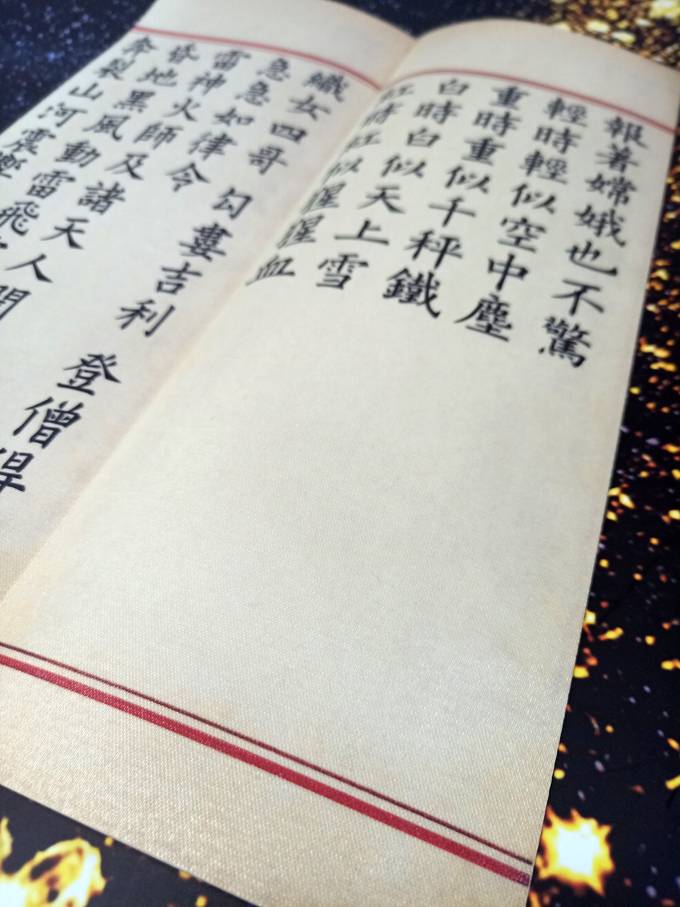 報著嫦娥也不驚
輕時輕似空中塵
重時重似千秤鐵
白時白似天上雪
紅時紅似猩猩血
織女四哥 勾婁吉利 登僧得
急急如律令
雷神火師及諸天人間
昏地黑風動雷飛
奔裂山河震